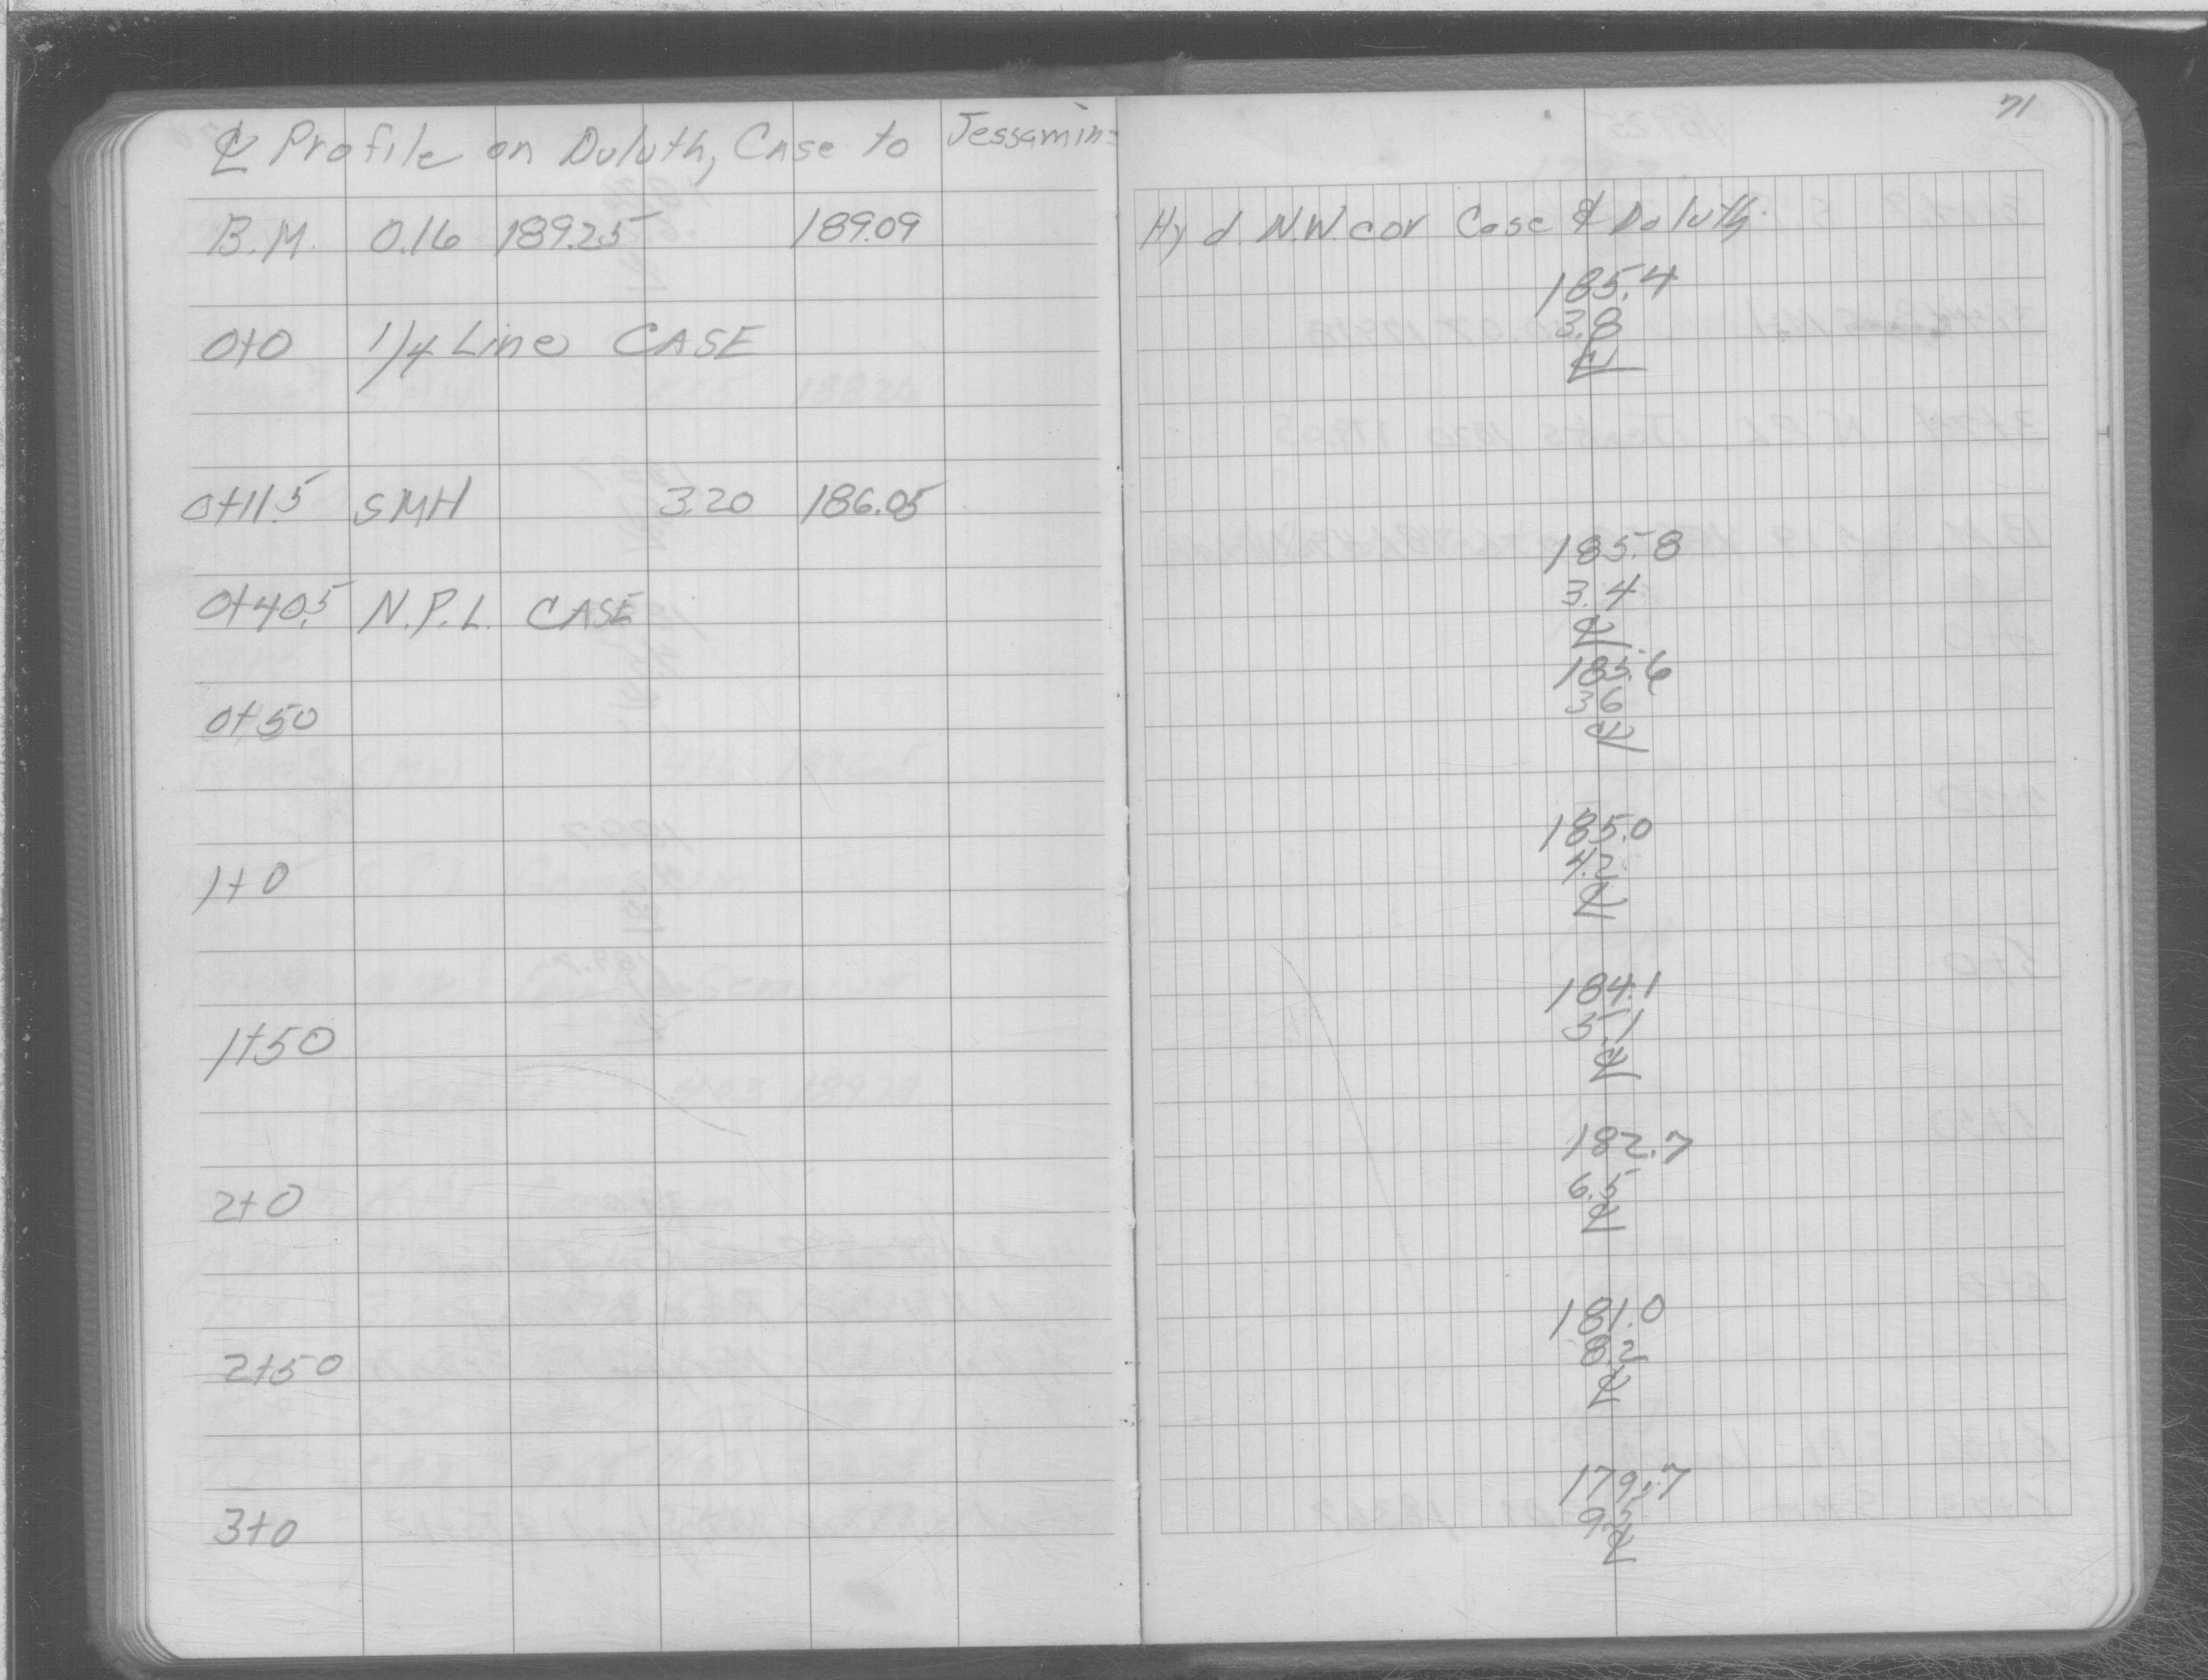 71
℄ Profile on Duluth, Case to Jessamine
B.M. 0.16 189.25 189.09 Hyd. N.W. cor Case & Duluth.
185.4
3.8
0+0 1/4 Line CASE ℄
0+11.5 SMH 3.20 186.05
185.8
3.4
0+40.5 N.P.L. CASE ℄
185.6
3.6
0+50 ℄
185.0
4.2
1+0 ℄
184.1
5.1
1+50 ℄
182.7
6.5
2+0 ℄
181.0
8.2
2+50 ℄
179.7
9.5
3+0 ℄